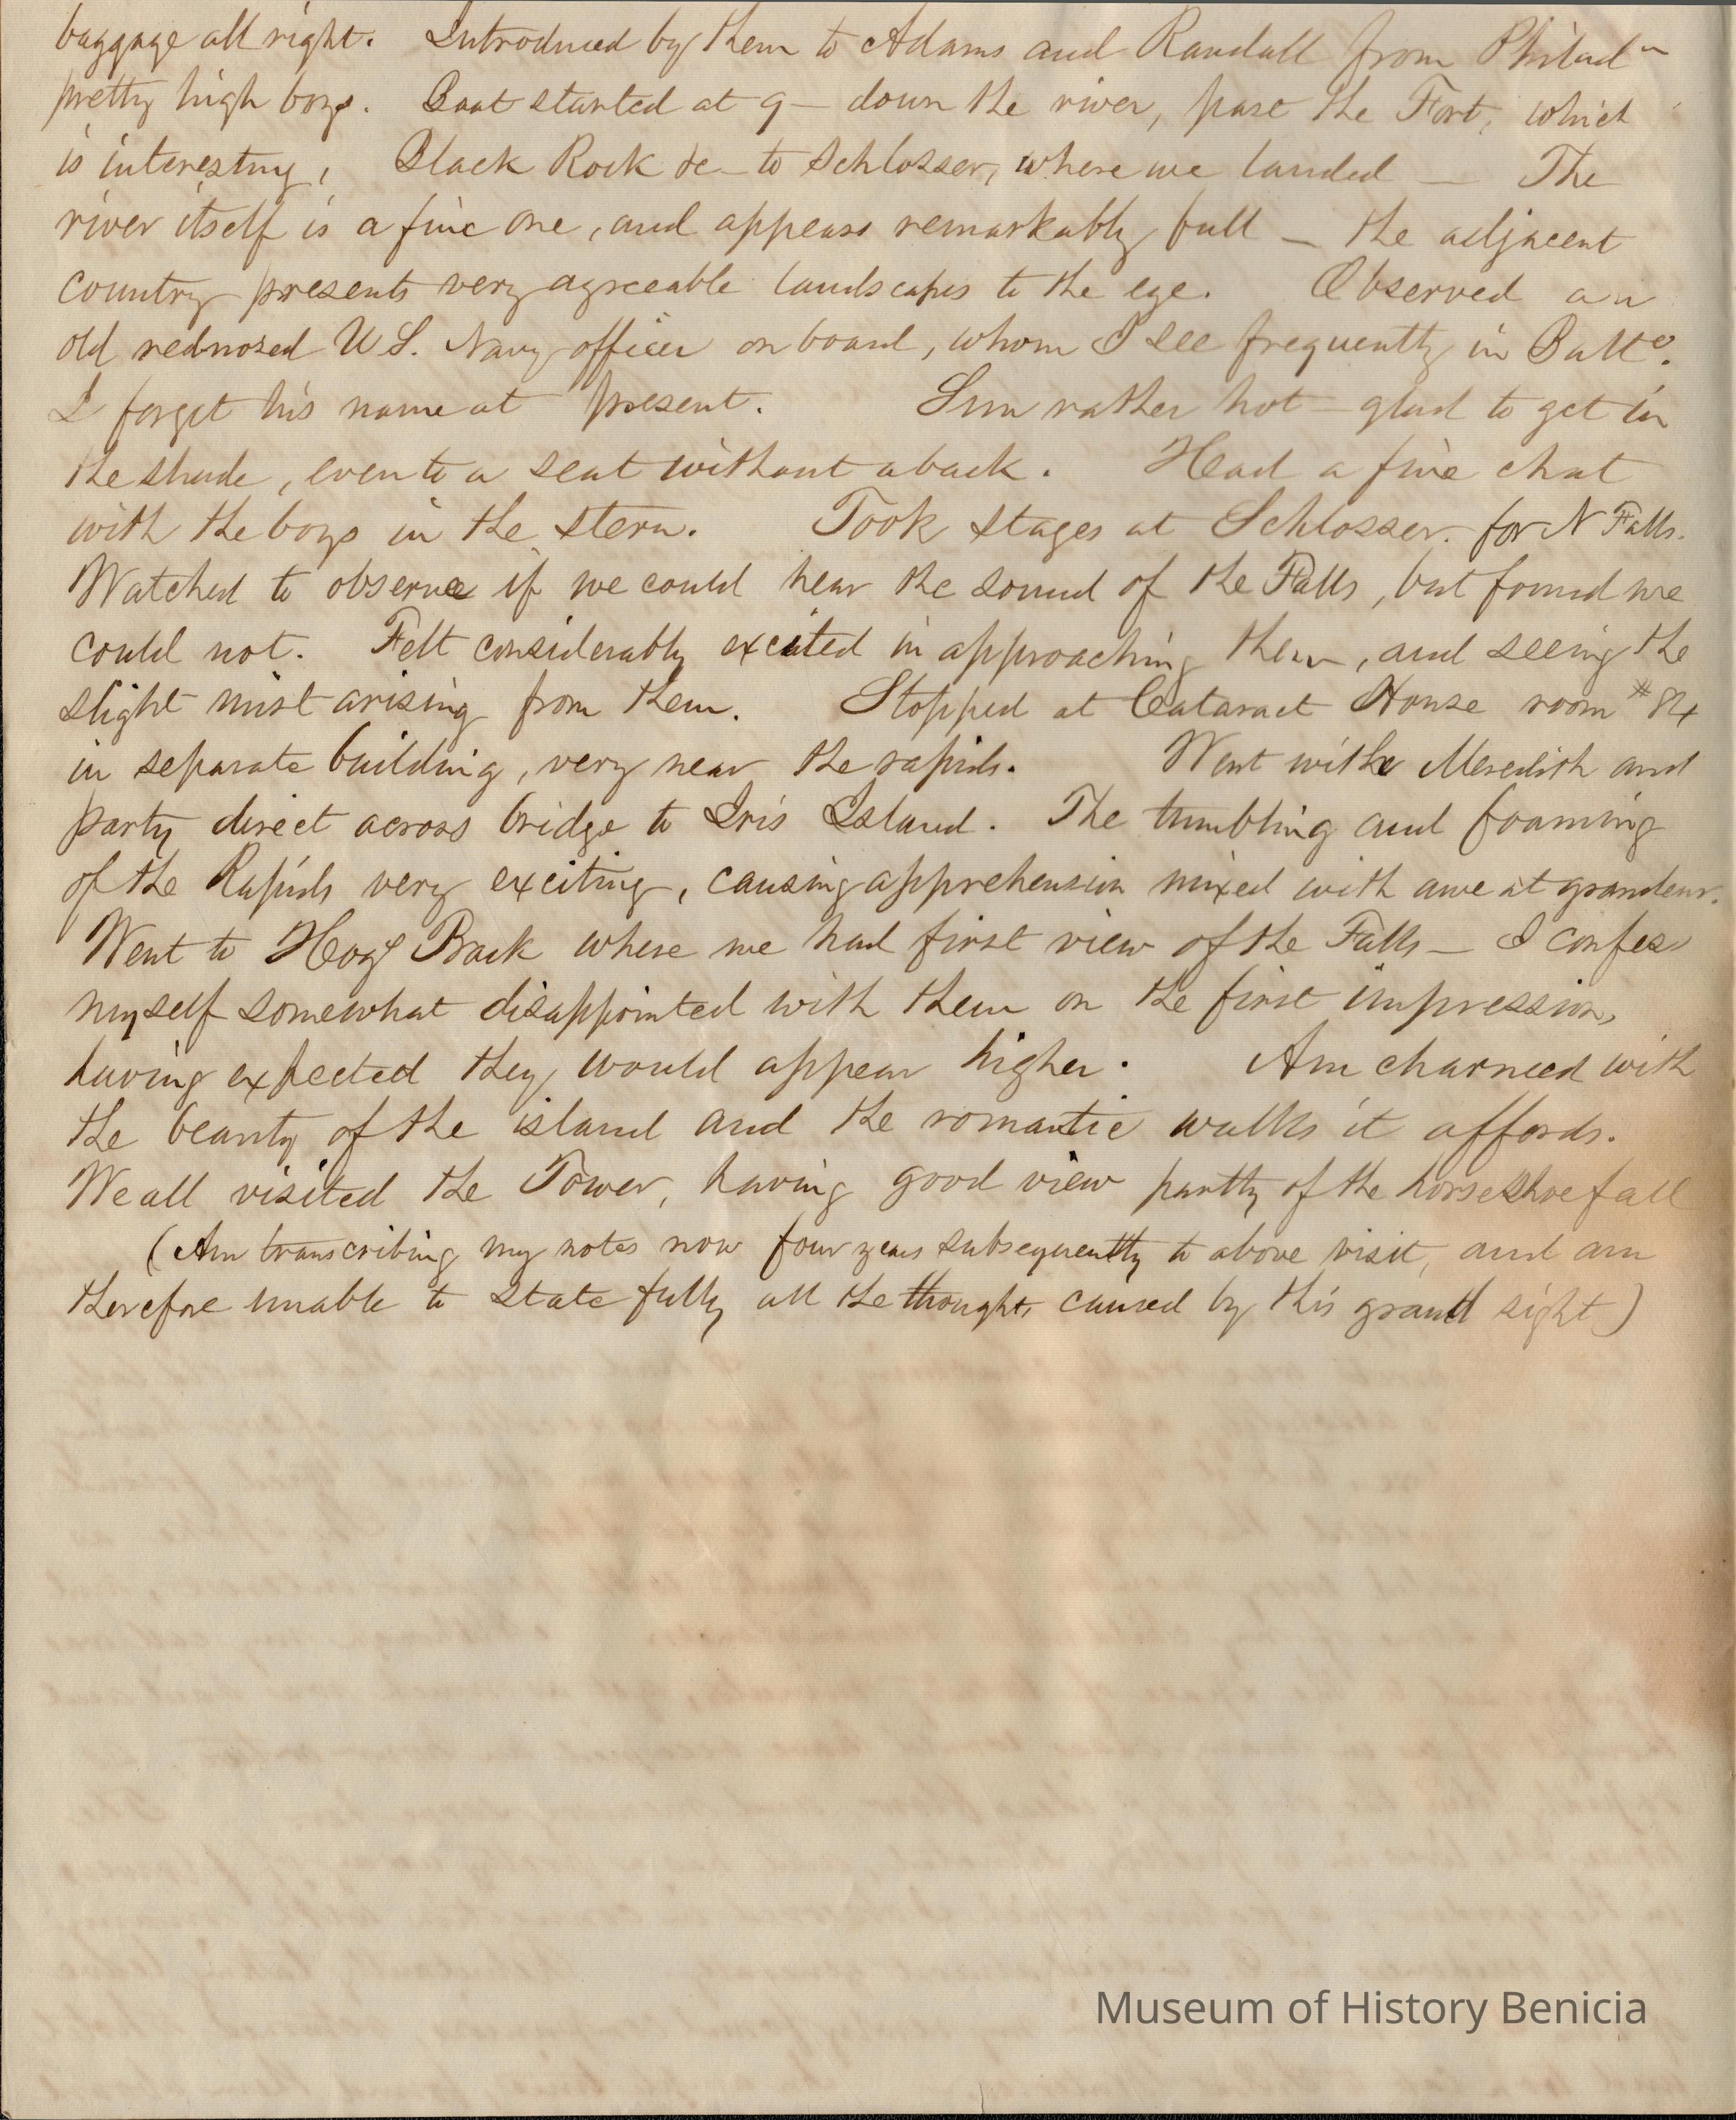 baggage all right. Introduced by them to Adams and Randall from Philada
pretty high boys. Boat started at 9 — down the river, past the Fort, which
is interesting, Black Rock &c — to Schlosser, where we landed — The
river itself is a fine one, and appears remarkably full — the adjacent
country presents very agreeable landscapes to the eye. Observed an
old rednosed U S. Navy officer on board, whom I see frequently in Balto.
I forget his name at present. Sun rather hot — glad to get in
the shade, even to a seat without a back. Had a fine chat
with the boys in the stern. Took stages at Schlosser. for N Falls.
Watched to observe if we could hear the sound of the Falls, but found we
could not. Felt considerably excited in approaching them, and seeing the
slight mist arising from them. Stopped at Cataract House room #84
in separate building, very near the rapids. Went with Meredith and
party direct across bridge to Iris Island. The tumbling and foaming
of the Rapids very exciting, causing apprehension mixed with awe at grandeur.
Went to Hogs Back where we had first view of the Falls — I confess
myself somewhat disappointed with them on the first impression,
having expected they would appear higher. Am charmed with
the beauty of the island and the romantic walks it affords.
We all visited the Tower, having good view partly of the horseshoe fall
(Am transcribing my notes now four years subsequently to above visit, and am
therefore unable to state fully all the thoughts caused by this grand sight)
Museum of History Benicia